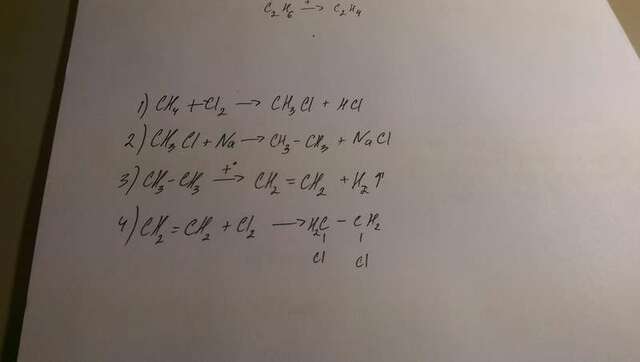 C₂H₆ →(t) C₂H₄
1) CH₄ + Cl₂ → CH₃Cl + HCl
2) CH₃Cl + Na → CH₃ – CH₃ + NaCl
3) CH₃ – CH₃ →(t°) CH₂ = CH₂ + H₂↑
4) CH₂ = CH₂ + Cl₂ → H₂C – CH₂
Cl Cl